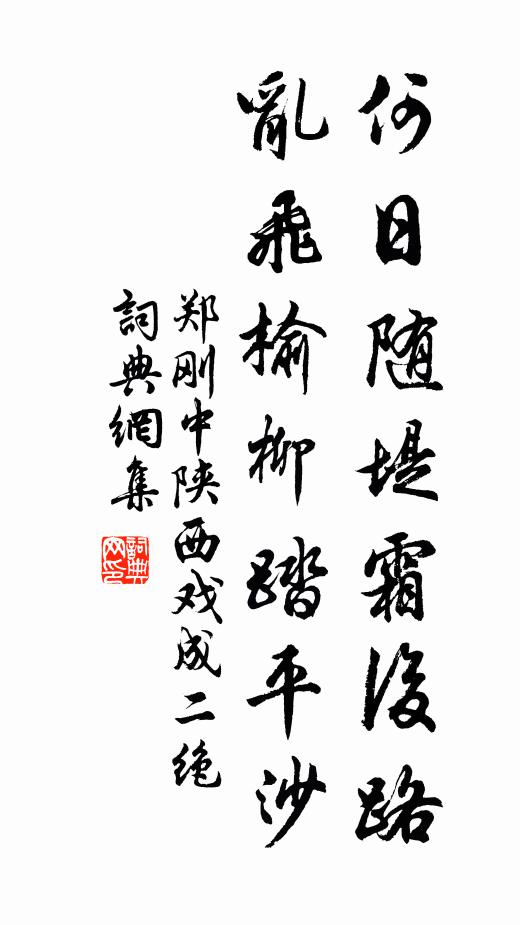 何日随堤霜後路
亂飛榆柳踏平沙
郑刚中陕西戏成二绝
詞典網集
詞典网印